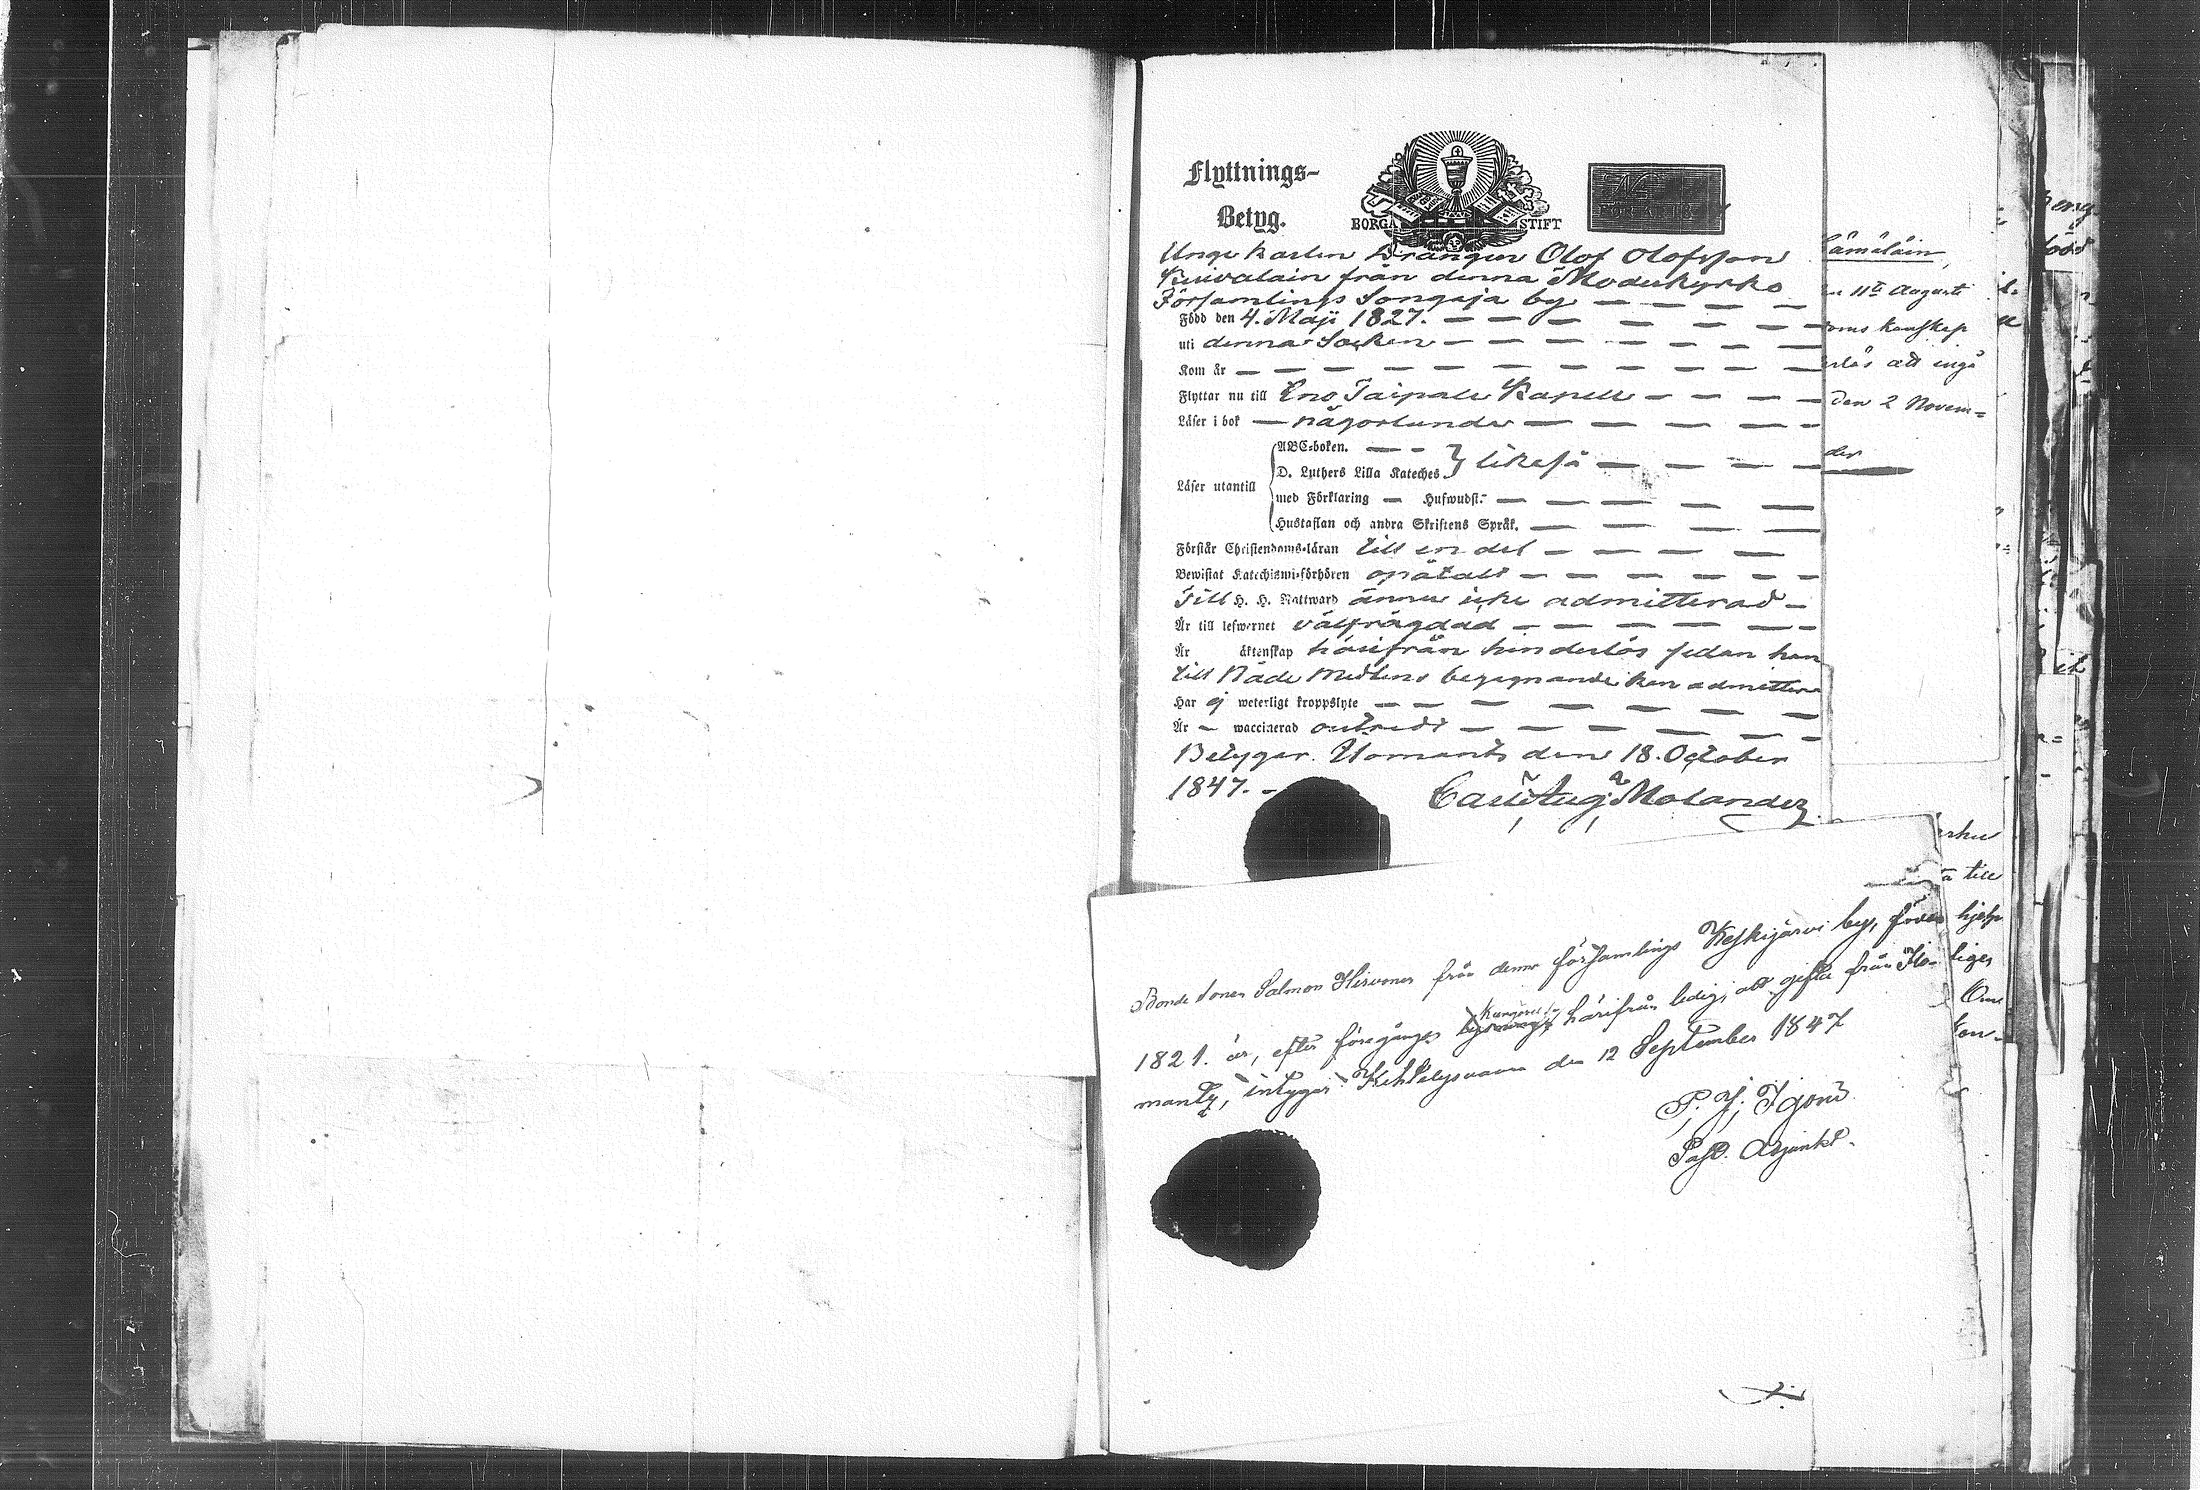 Flyttnings-
Betyg.
BORGÅ STIFT
Unge karlen Drängen Olof Olofsson
Kuivalain från denna Moderkyrko
Församlings Sonkaja by
Född den 4. Maji 1827.
uti denna Socken
Kom år
Flyttar nu till Eno Taipale Kapell
Läser i bok någorlunda
Läser utantill
ABC-boken.
D. Luthers Lilla Kateches } likaså
med Förklaring Hufwudst.
Hustaflan och andra Skriftens Språk.
Förstår Christendoms-läran till en del
Bewistat Katechismi-förhören opåtalt
Till H. H. Nattward ännu icke admitterad
Är till lefwernet välfrägdad
Är äktenskap härifrån hinderlös sedan han
till Nåde Medlens begagnande kan admitteras
Har ej weterligt kroppslyte
Är waccinerad
Betygar. Ilomants den 18. October
1847.
Carl Aug. Molander
ämäläin,
11te Augusti
oms kunskap
erlös att ingå
den 2 Novem=
der
till
hjelp
liger
Om
kon-
Bonde sonen Salmon Hirvonen från denna församlings Keskijärvi by, född
1821. är, efter föregången härifrån ledig, att gifta från Ilo-
mants, intygar Kihtelysvaara den 12 September 1847
Past. Adjunkt.